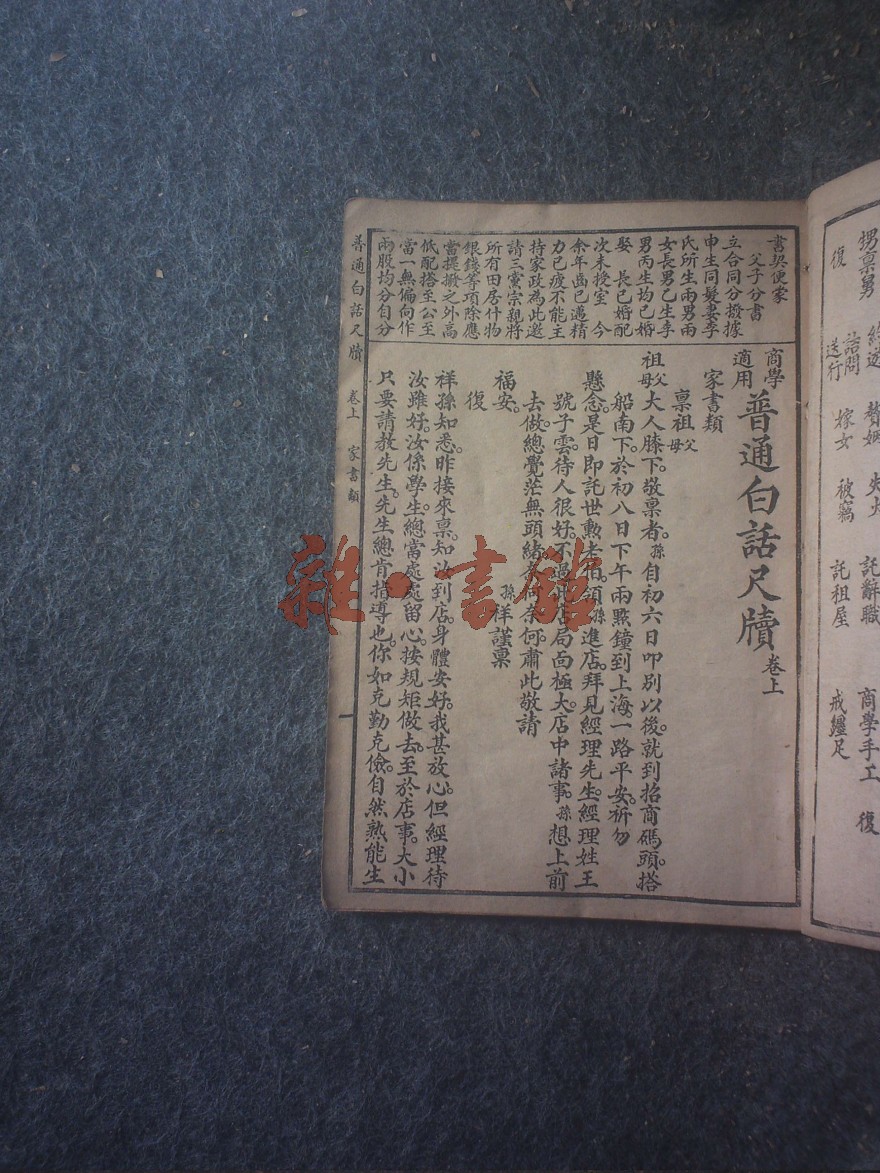 甥稟男
復
詰問
送行
嫁女 被竊
託辭職
託租屋
商學手工 復
戒纏足
書契便蒙
父子分書
立合同分撥據
申生同髮妻李
氏所生兩男兩
女長男乙生李
男丙生均已婚
娶 長已婚配
次未授室 今
余年齒已邁精
力已疲不能主
持家政為此邀
請三黨宗親將
所有田居什物
銀錢等項除應
當提撥之外高
低配搭至公至
當一無偏向作
兩股均分自分
商學
適用
普通白話尺牘 卷上
家書類
稟祖父母
祖父母大人膝下。敬稟者。孫自初六日叩別以後。就到招商碼頭。搭
船南下。於初八日下午兩點鐘到上海一路平安。祈勿
懸念。是日即託世勳老伯。領孫進店。拜見經理先生。經理姓王
號子雲。待人很好。不過店局面極大。店中諸事。孫想上前
去做。總覺茫無頭緒。奈何。肅此敬請
福安。
孫祥謹稟
復
祥孫知悉。昨接來稟。知汝到店。身體安好。我甚放心。但經理待
汝雖好。汝係學生。總當處處留心。按規矩做去。至於店事。大小
只要請教先生。先生總肯指導也。你如克勤克儉。自然熟能生
普通白話尺牘 卷上 家書類
雜·書館